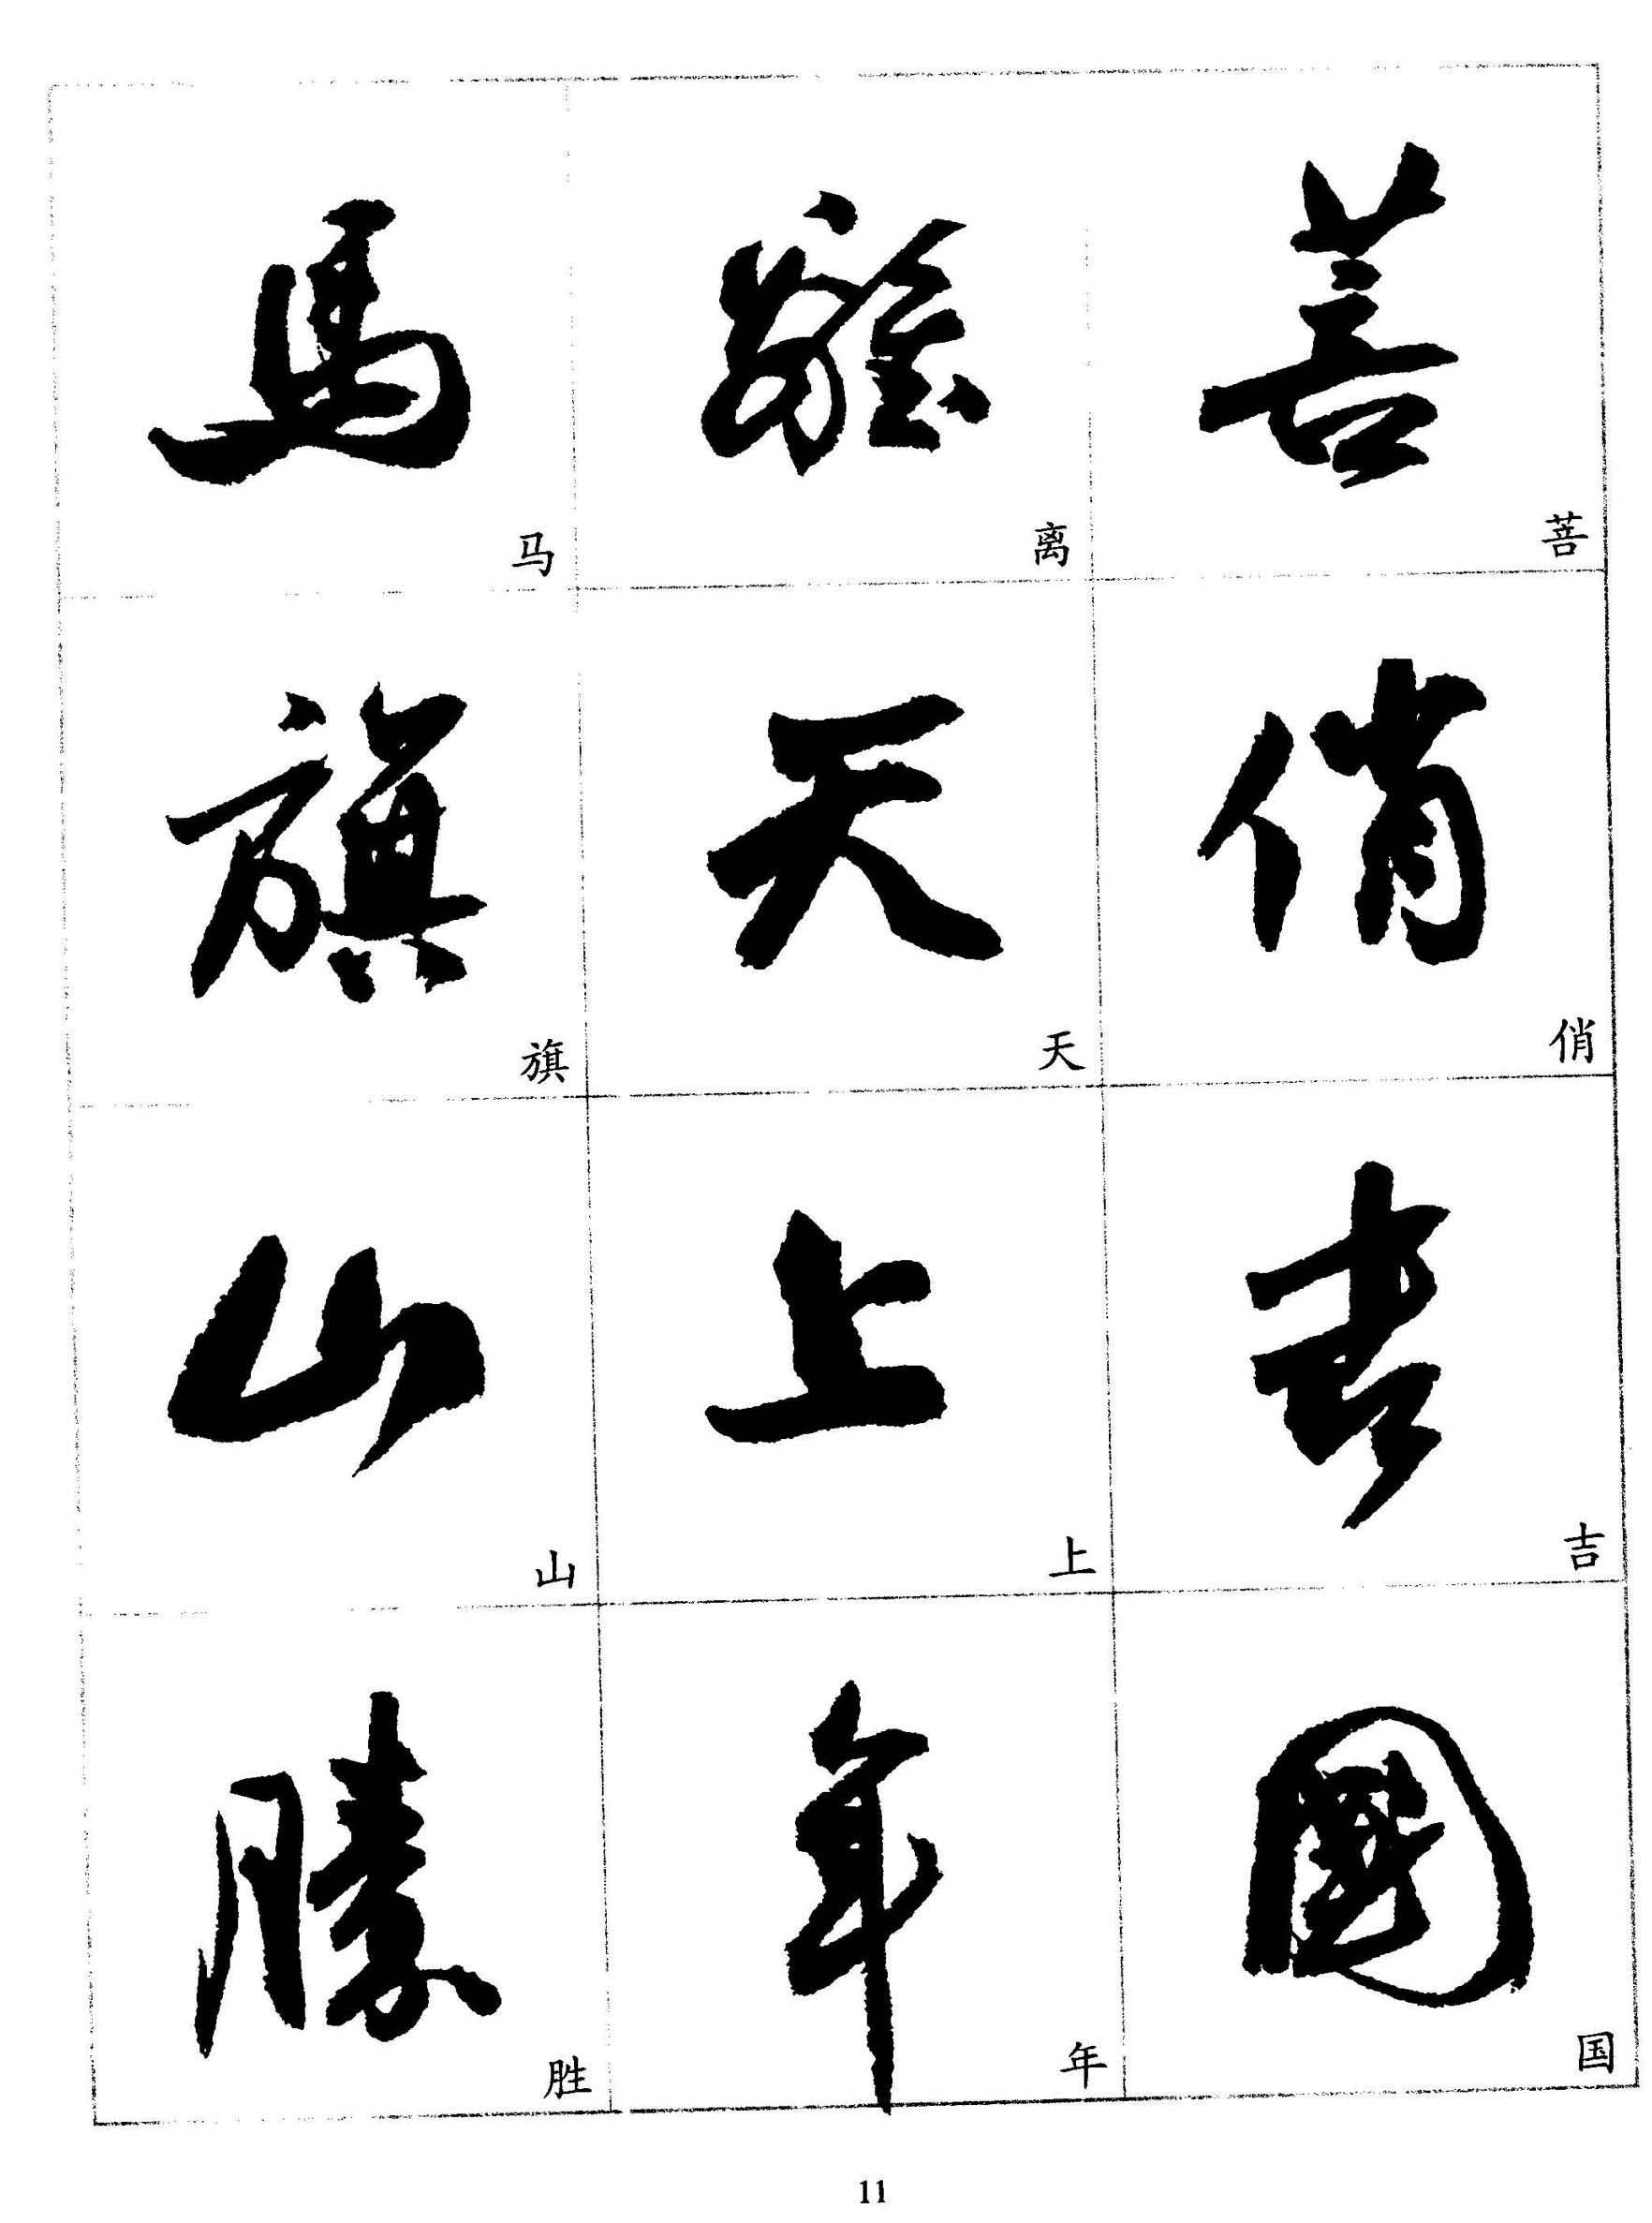 馬 離 菩
马 离 菩
旗 天 俏
旗 天 俏
山 上 吉
山 上 吉
勝 年 國
胜 年 国
11